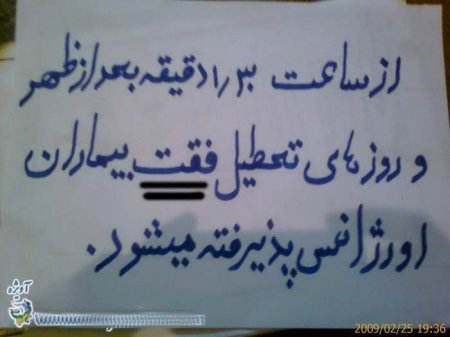 از ساعت ۱٫۳۰ دقیقه بعد از ظهر
و روزهای تحطیل فقت بیماران
اورژانس پذیرفته میشود.
2009/02/25 19:36